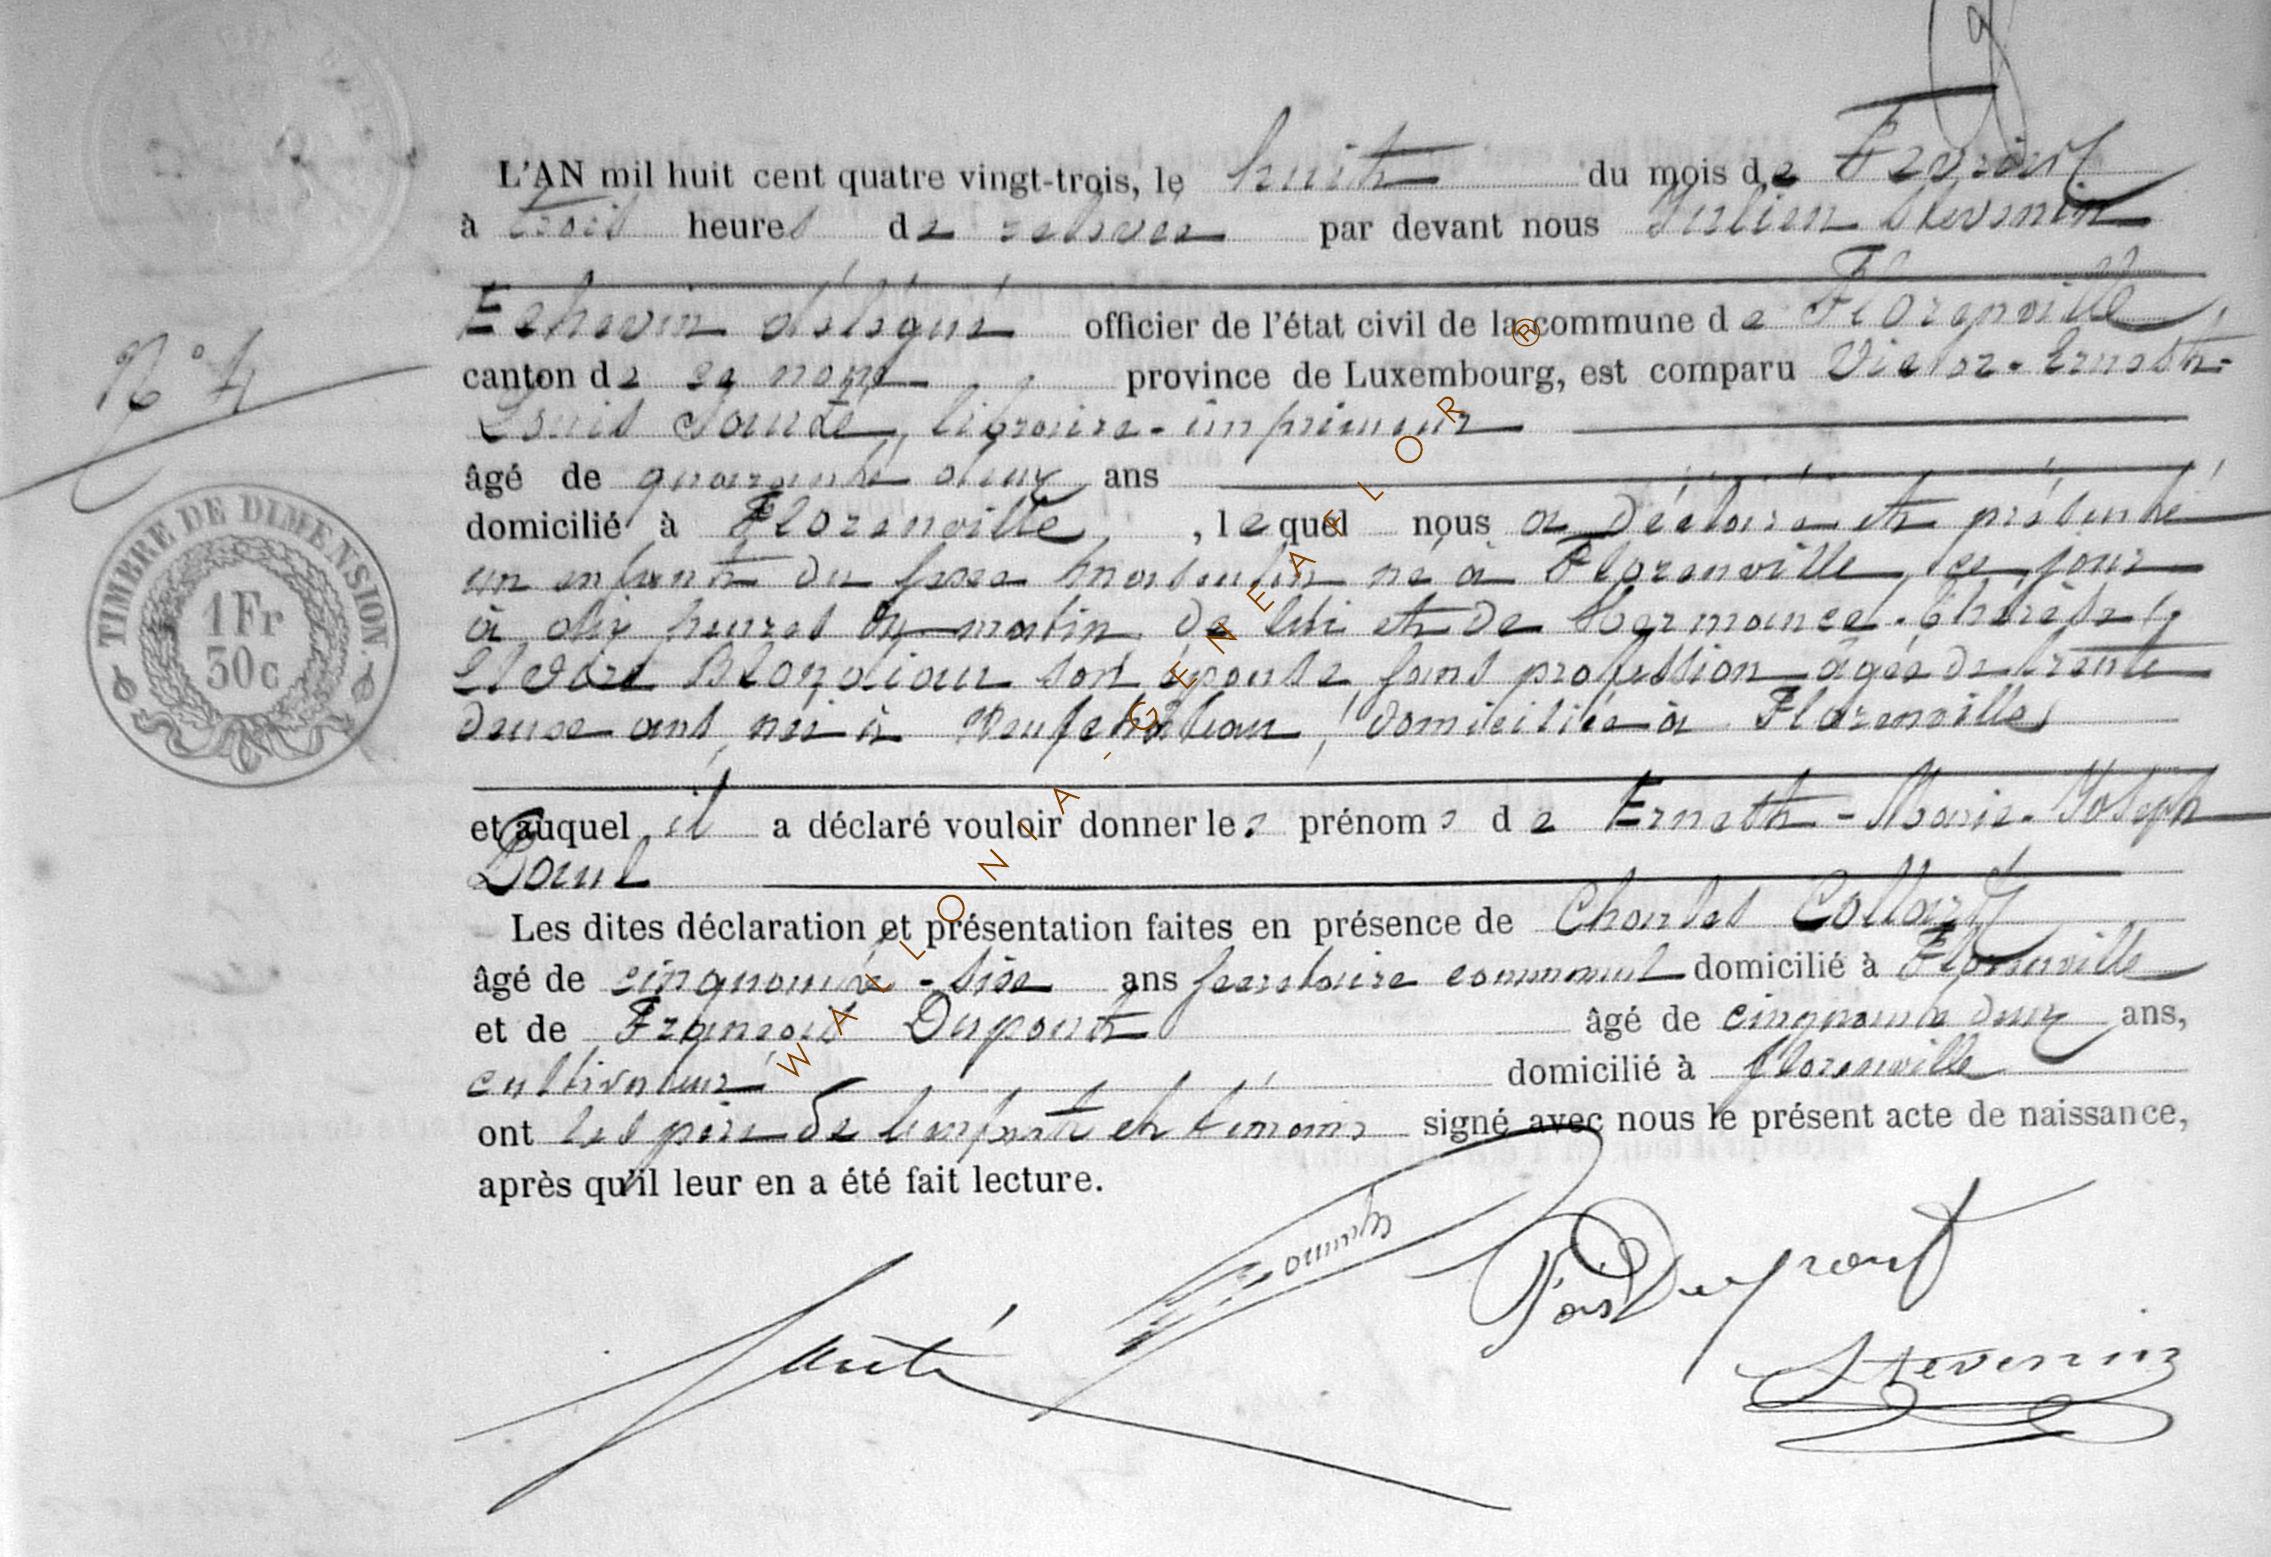 L'AN mil huit cent quatre vingt-trois, le huit du mois de Fevrier
à trois heures de relevée par devant nous Julien Stevenin
Echevin délégué officier de l'état civil de la commune de Florenville,
canton de ce nom, province de Luxembourg, est comparu Victor-Ernest-
N° 4
Louis Sauté, libraire-imprimeur
âgé de quarante deux ans
domicilié à Florenville, lequel nous a déclaré et présenté
TIMBRE DE DIMENSION.
1 Fr
30 c
un enfant du sexe masculin né à Florenville, ce jour
à dix heures du matin, de lui et de Hermance-Thérèse
Blondiau son épouse, sans profession âgée de trente
deux ans, née à Neufchâteau, domiciliée à Florenville,
et auquel il a déclaré vouloir donner les prénoms de Ernest-Marie-Joseph
Paul
Les dites déclaration et présentation faites en présence de Charles Collard
âgé de cinquante-six ans secretaire communal domicilié à Florenville
et de François Dupont âgé de cinquante deux ans,
cultivateur domicilié à Florenville
ont les père de l'enfant et témoins signé avec nous le présent acte de naissance,
après qu'il leur en a été fait lecture.
Sauté
Fçois Dupont
Stevenin
WALLONIA-GENEALOR ®